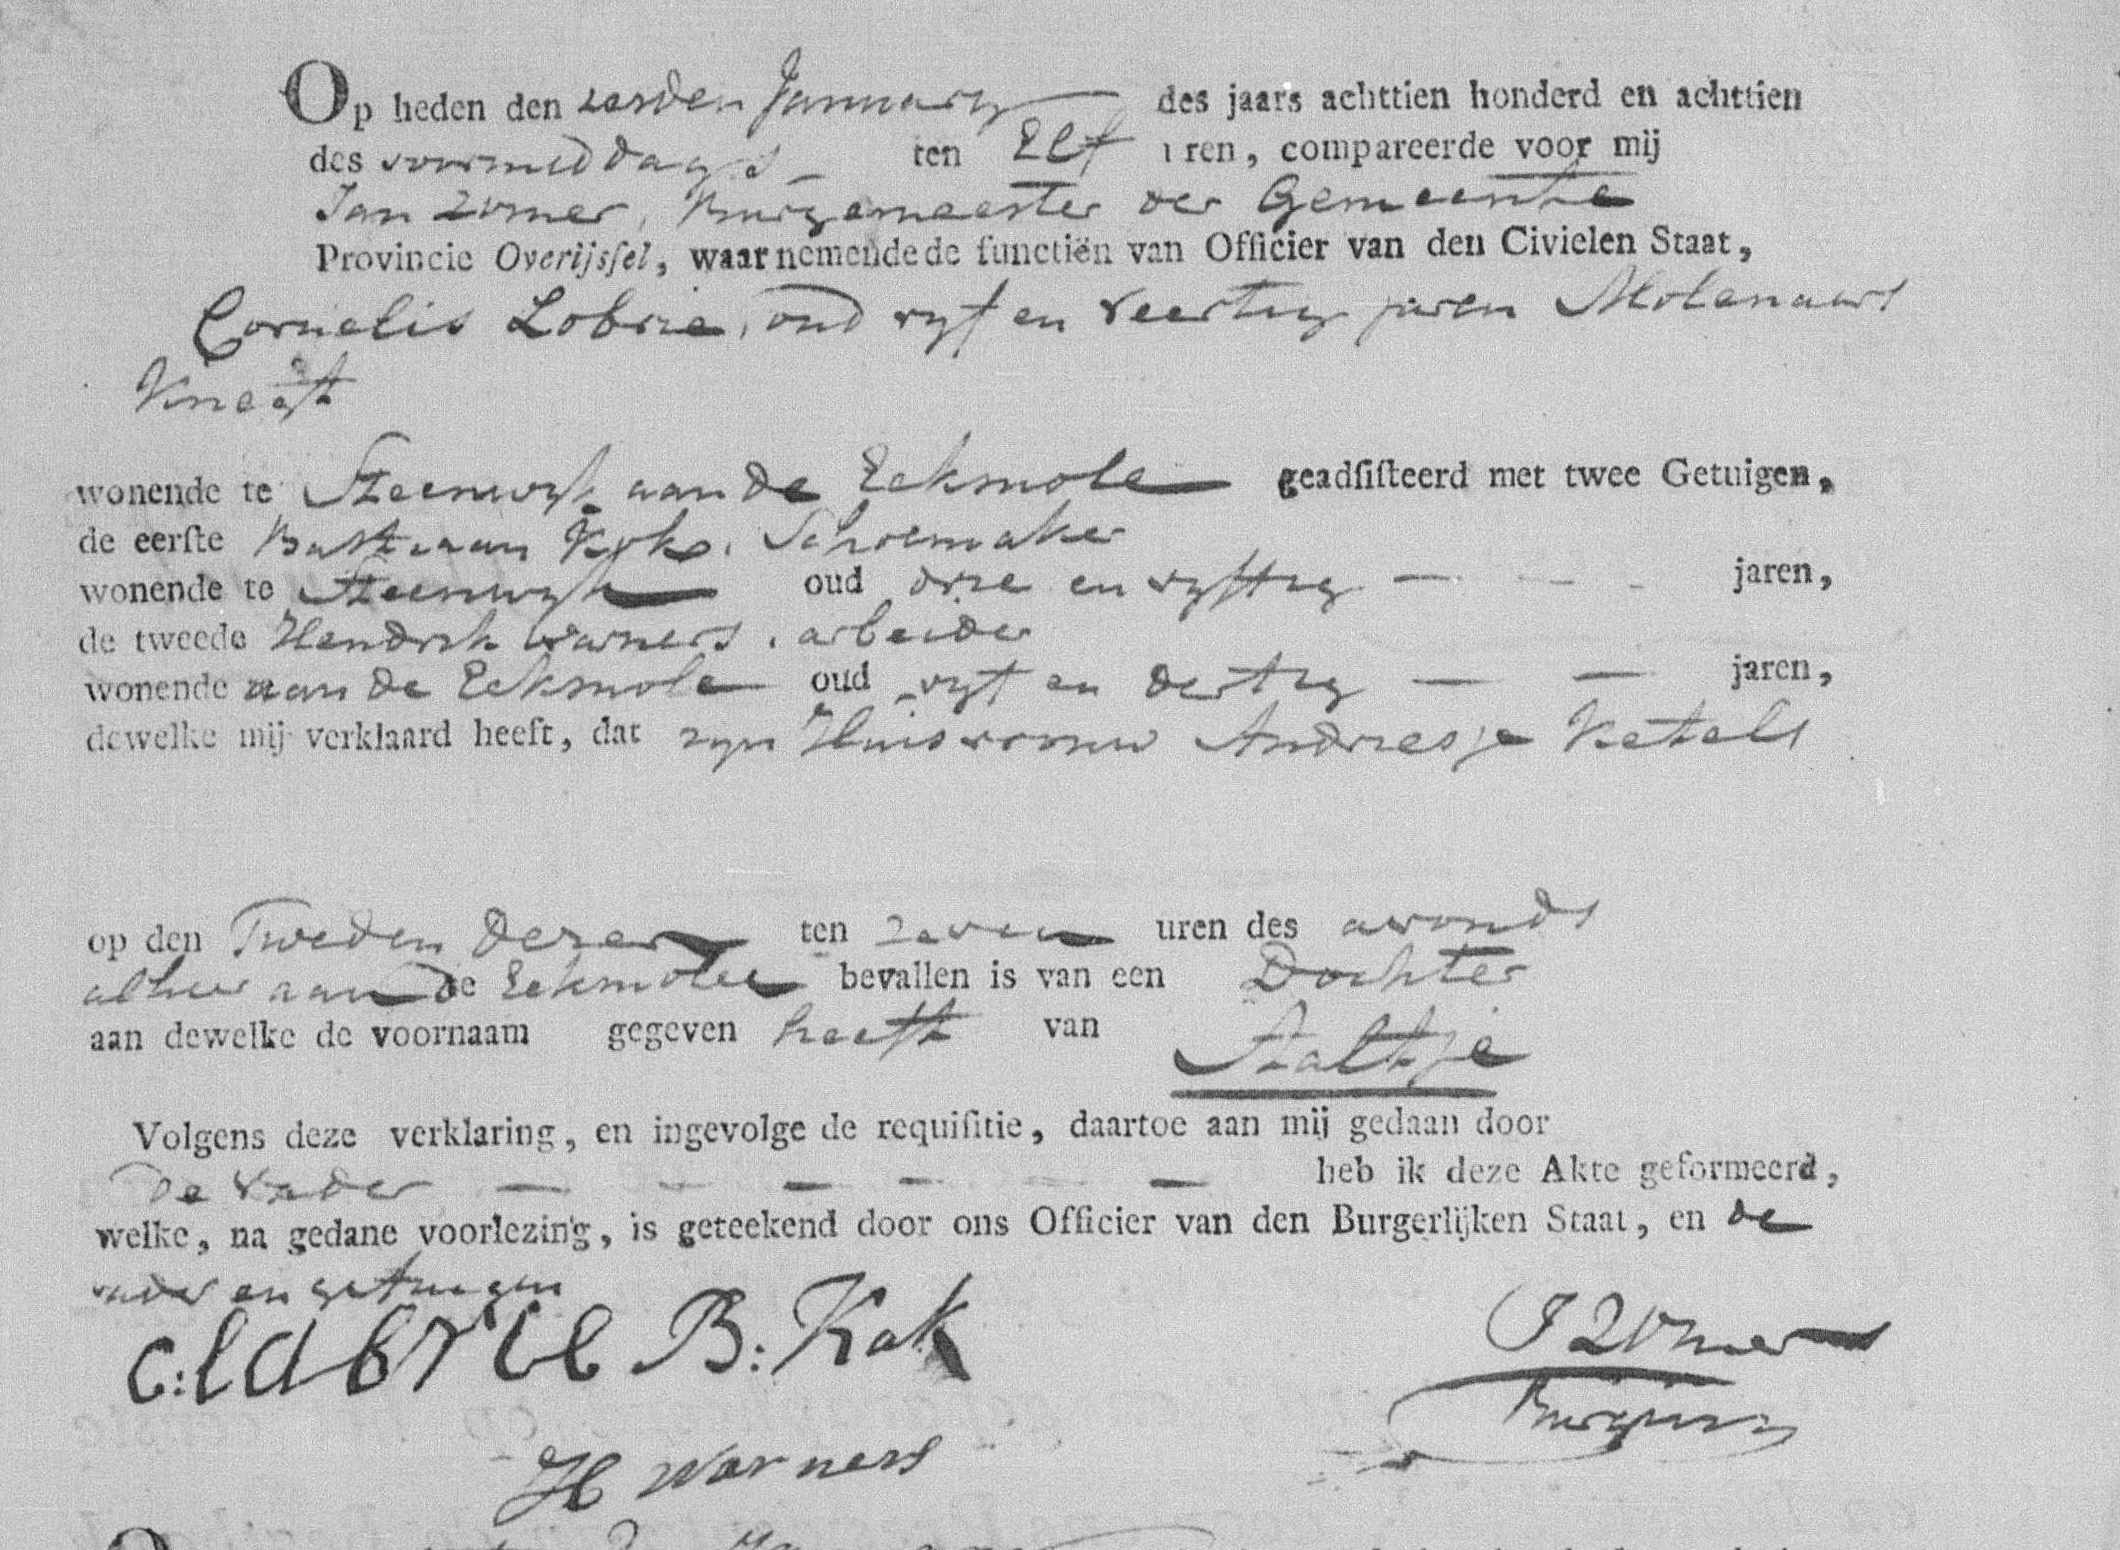 Op heden den zesden January des jaars achttien honderd en achttien
des voormiddags ten Elf uren, compareerde voor mij
Jan Zomer, Burgemeester der Gemeente
Provincie Overijssel, waarnemende de functiën van Officier van den Civielen Staat,
Cornelis Lobrie, oud vyf en veertig jaren Molenaars
Knegt
wonende te Steenwyk aan de Eekmole geadsisteerd met twee Getuigen,
de eerste Bastiaan Kok, Schoemaker
wonende te Steenwyk oud drie en vyftig jaren,
de tweede Hendrik Warners, arbeider
wonende aan de Eekmole oud vyf en dertig jaren,
dewelke mij verklaard heeft, dat zyn Huisvrouw Andriesje Ketels
op den Tweden dezer ten zeven uren des avonds
alhier aan de Eekmolen bevallen is van een Dochter
aan dewelke de voornaam gegeven heeft van Aaltje
Volgens deze verklaring, en ingevolge de requisitie, daartoe aan mij gedaan door
De Vader heb ik deze Akte geformeerd,
welke, na gedane voorlezing, is geteekend door ons Officier van den Burgerlijken Staat, en de
vader en getuigen
C: labrie B: Kok
J Zomer
H Warners